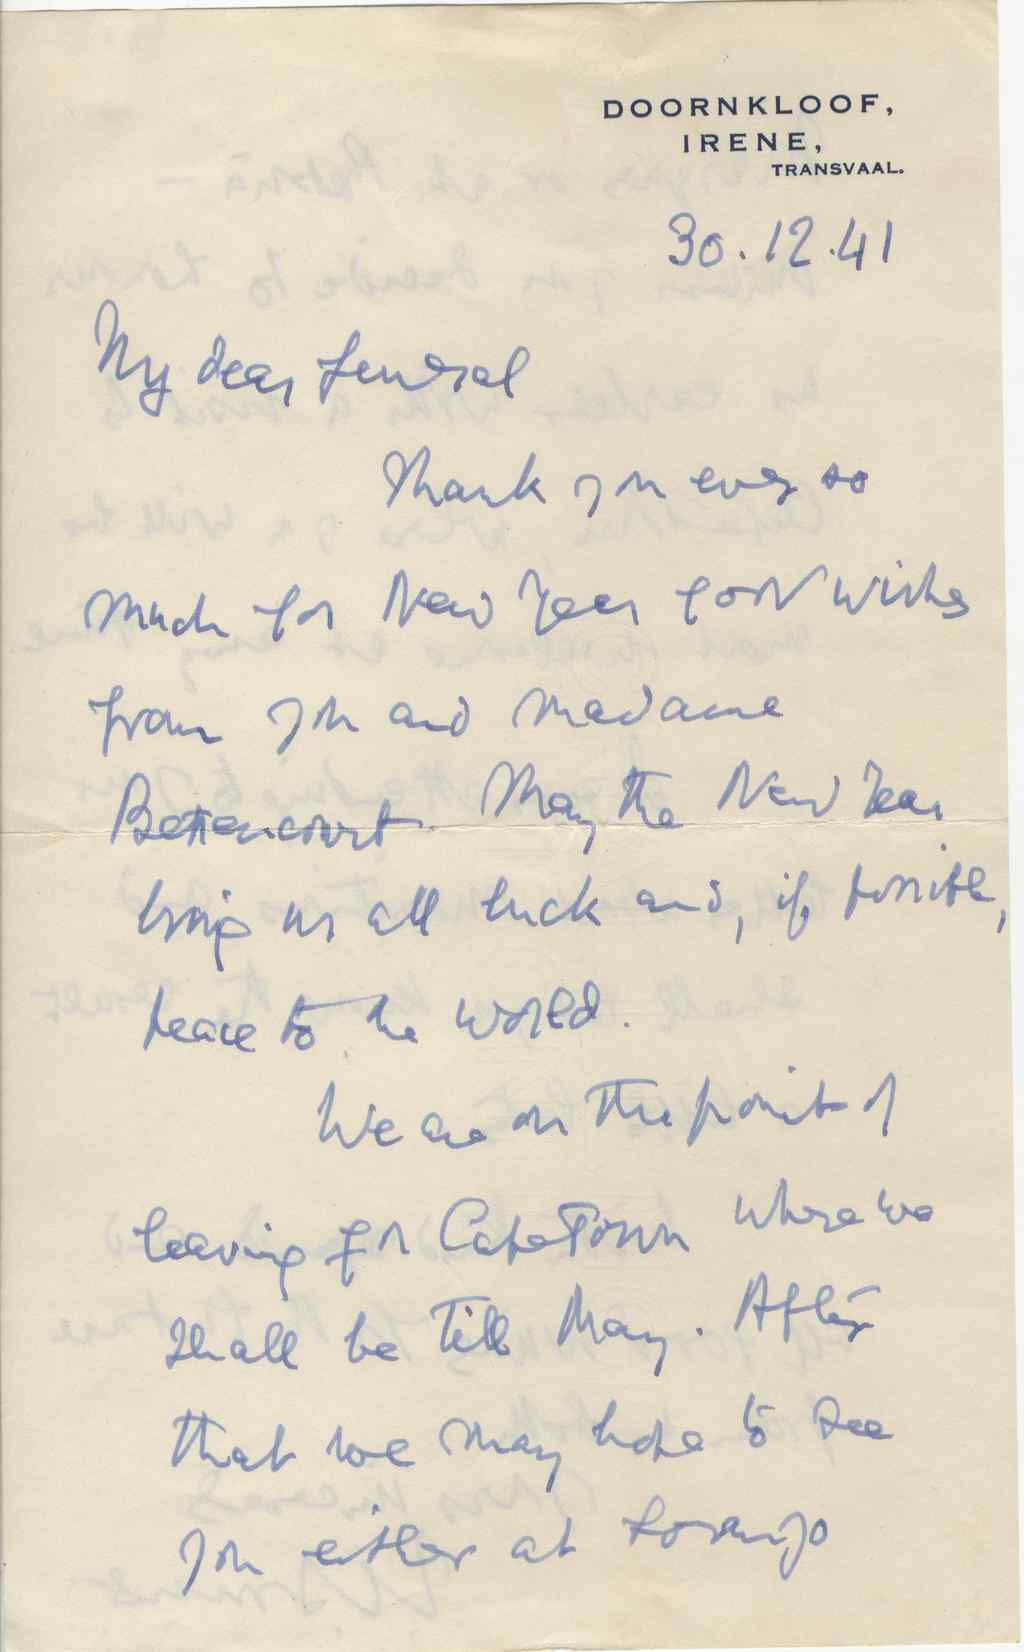 DOORNKLOOF,
IRENE,
TRANSVAAL.
30.12.41
My dear General
Thank you ever so
much for New Year good wishes
from you and Madame
Bettencourt. May the New Year
bring us all luck and, if possible,
peace to the world.
We are on the point of
leaving for Cape Town where we
shall be till May. After
that we may hope to see
you either at